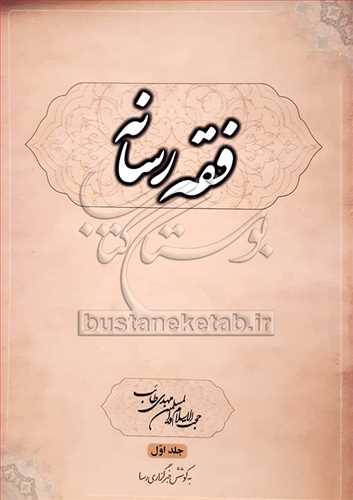 فقه رسانه
بوستان کتاب
bustaneketab.ir
حجت الاسلام والمسلمین مهدی طائب
جلد اوّل
به کوشش خبرگزاری رسا